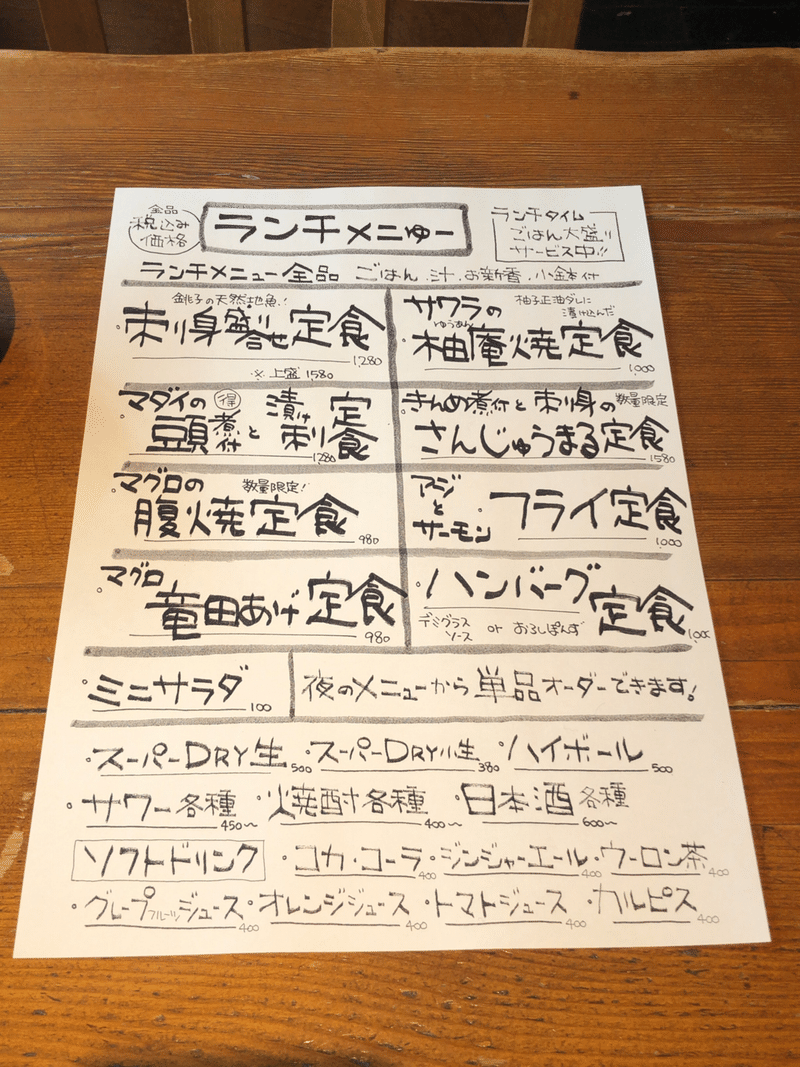 全品
税込み
価格
ランチメニゅー
ランチタイム
ごはん大盛り
サービス中!!
ランチメニュー全品 ごはん.汁.お新香.小鉢付
銚子の天然地魚!
・刺身盛り合せ定食
1,280
※上盛 1580
サワラの
柚子正油ダレに
漬け込んだ
ゆうあん
・柚庵焼定食
1,000
・マダイの 得
頭煮付と漬け刺定食
1280
・きんめ煮付と刺身の 数量限定
さんじゅうまる定食
1580
・マグロの 数量限定!
腹焼定食
980
・アジとサーモン
フライ定食
1,000
・マグロ
竜田あげ定食
980
・ハンバーグ定食
デミグラスソース or おろしぽんず
・ミニサラダ
100
夜のメニューから単品オーダーできます!
・スーパーDRY生 500 ・スーパーDRY小生 380 ・ハイボール 500
・サワー各種 450〜 ・焼酎各種 400〜 ・日本酒各種 600〜
ソフトドリンク ・コカ・コーラ 400 ・ジンジャーエール 400 ・ウーロン茶 400
・グレープフルーツジュース 400 ・オレンジジュース 400 ・トマトジュース 400 ・カルピス 400